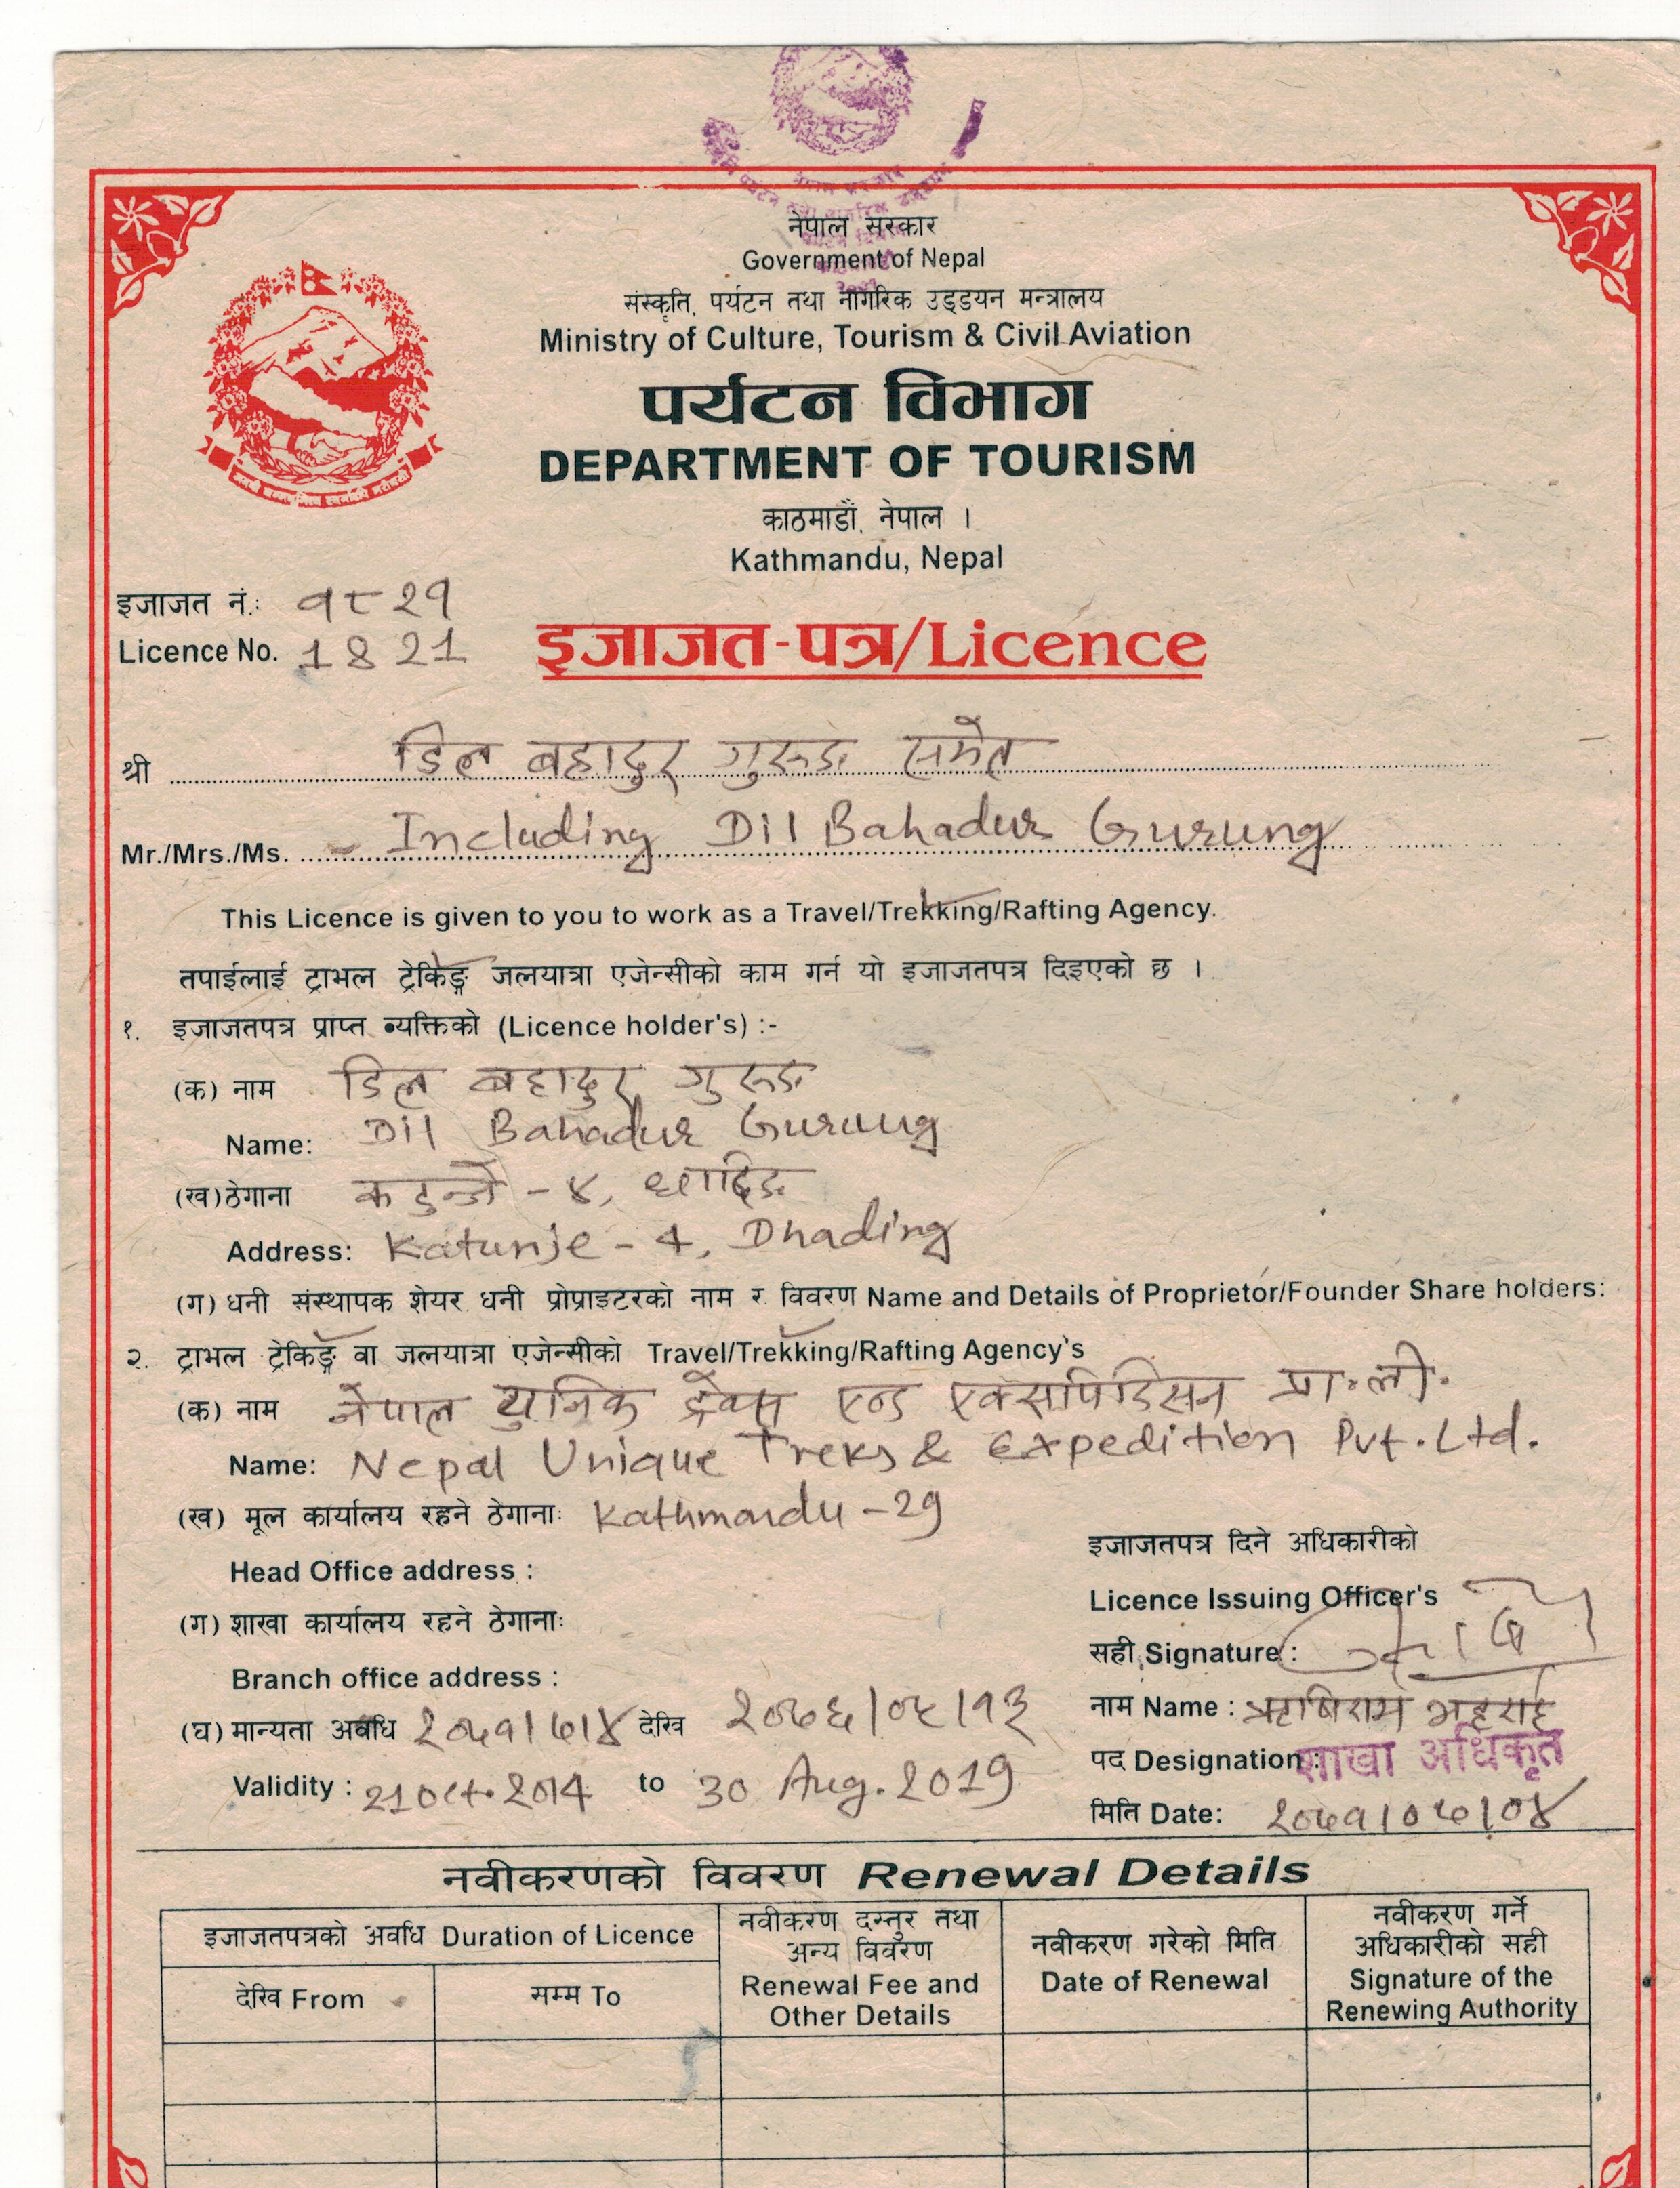 नेपाल सरकार
Government of Nepal
संस्कृति, पर्यटन तथा नागरिक उड्डयन मन्त्रालय
Ministry of Culture, Tourism & Civil Aviation
पर्यटन विभाग
DEPARTMENT OF TOURISM
काठमाडौं, नेपाल ।
Kathmandu, Nepal
इजाजत नं.: १८२१
Licence No. 1821
इजाजत-पत्र/Licence
श्री डिल बहादुर गुरुङ समेत
Mr./Mrs./Ms. - Including Dil Bahadur Gurung
This Licence is given to you to work as a Travel/Trekking/Rafting Agency.
तपाईलाई ट्राभल ट्रेकिङ्ग जलयात्रा एजेन्सीको काम गर्न यो इजाजतपत्र दिइएको छ ।
१. इजाजतपत्र प्राप्त व्यक्तिको (Licence holder's) :-
(क) नाम डिल बहादुर गुरुङ
Name: Dil Bahadur Gurung
(ख) ठेगाना कटुन्जे - ४, धादिङ
Address: Katunje - 4, Dhading
(ग) धनी संस्थापक शेयर धनी प्रोप्राइटरको नाम र विवरण Name and Details of Proprietor/Founder Share holders:
२. ट्राभल ट्रेकिङ्ग वा जलयात्रा एजेन्सीको Travel/Trekking/Rafting Agency's
(क) नाम नेपाल युनिक ट्रेक्स एन्ड एक्सपिडिसन प्रा.ली.
Name: Nepal Unique Treks & Expedition Pvt. Ltd.
(ख) मूल कार्यालय रहने ठेगाना: Kathmandu - 29
Head Office address :
(ग) शाखा कार्यालय रहने ठेगाना:
Branch office address :
(घ) मान्यता अवधि २०७१/७/४ देखि २०७६/०५/१३
Validity : 21 Oct. 2014 to 30 Aug. 2019
इजाजतपत्र दिने अधिकारीको
Licence Issuing Officer's
सही Signature :
नाम Name : ऋषिराम भट्टराई
पद Designation : शाखा अधिकृत
मिति Date: २०७१/०७/०४
नवीकरणको विवरण Renewal Details
इजाजतपत्रको अवधि Duration of Licence
देखि From
सम्म To
नवीकरण दस्तुर तथा
अन्य विवरण
Renewal Fee and
Other Details
नवीकरण गरेको मिति
Date of Renewal
नवीकरण गर्ने
अधिकारीको सही
Signature of the
Renewing Authority